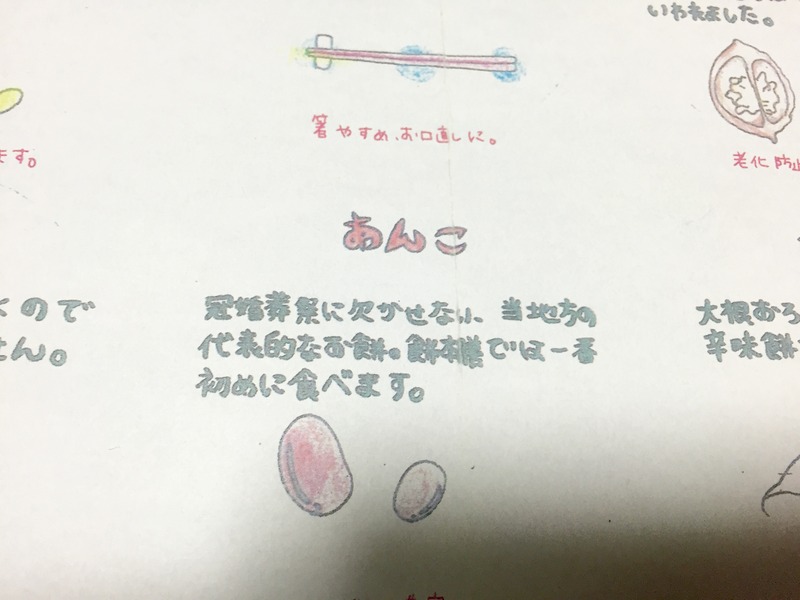 いわれました。
箸やすめ、お口直しに。
ます。
老化防止
あんこ
くので
せん。
冠婚葬祭に欠かせない、当地方の
代表的なお餅。餅本膳では一番
初めに食べます。
大根おろ
辛味餅